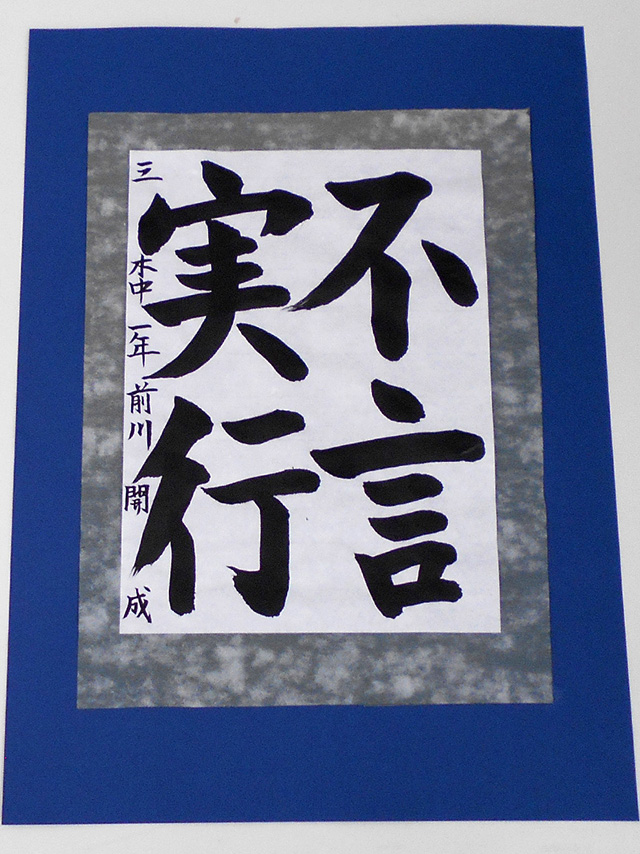 不言
実行
三木中一年前川開成